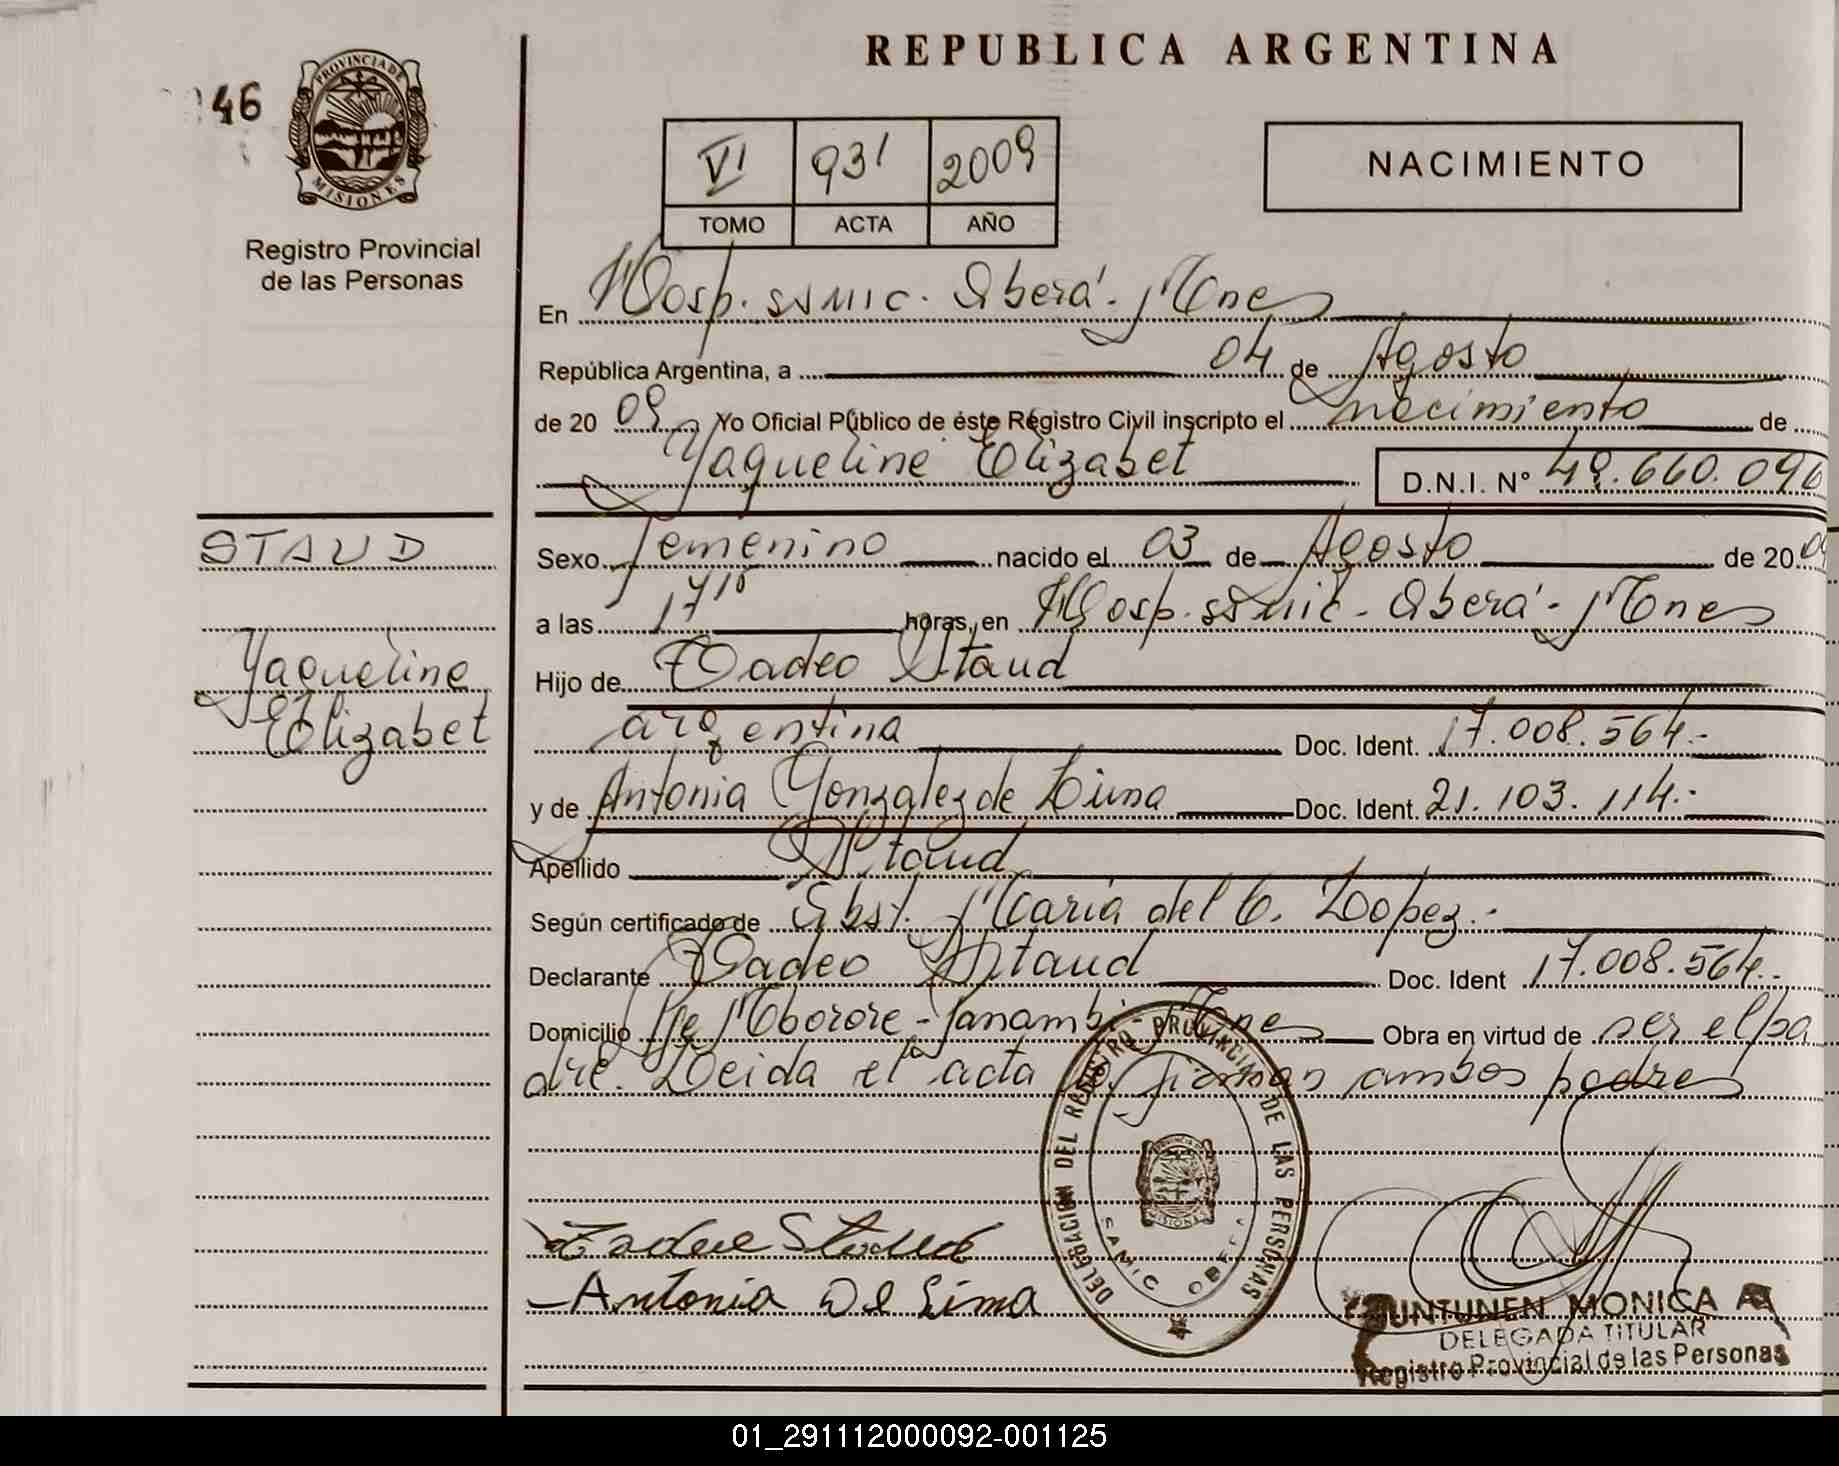 REPUBLICA ARGENTINA
46
PROVINCIA DE
MISIONES
Registro Provincial
de las Personas
VI 931 2009
TOMO ACTA AÑO
NACIMIENTO
En Hosp. SSMIC. Oberá. Mnes
República Argentina, a 04 de Agosto
de 20 09 Yo Oficial Público de éste Registro Civil inscripto el nacimiento de
Yaqueline Elizabet D.N.I. N° 49.660.096
STAUD
Yaqueline
Elizabet
Sexo femenino nacido el 03 de Agosto de 20 09
a las 17 horas, en Hosp. SSMIC - Oberá - Mnes
Hijo de Tadeo Staud
argentina Doc. Ident. 17.008.564.-
y de Antonia Gonzalez de Lima Doc. Ident. 21.103.114.-
Apellido Staud
Según certificado de Obst. Maria del C. Lopez.-
Declarante Tadeo Staud Doc. Ident 17.008.564.-
Domicilio Mborore - Panambi - Mnes Obra en virtud de ser el pa
dre. Leida el acta la firman ambos padres
DELEGACIÓN DEL REGISTRO PROVINCIAL DE LAS PERSONAS
SAMIC OBERA
Tadeo Staud
Antonia De Lima
MONICA A
DELEGADA TITULAR
Registro Provincial de las Personas
01_291112000092-001125